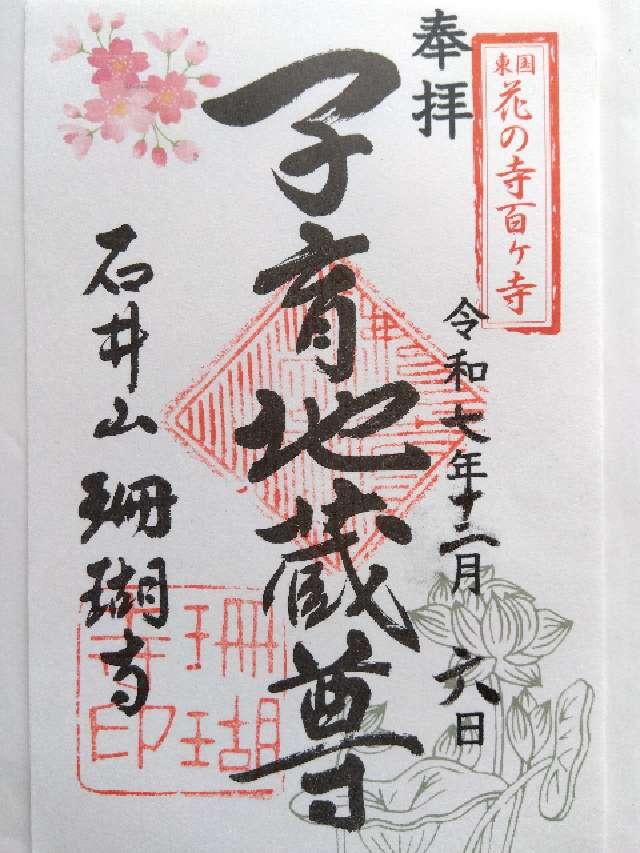 東国
花の寺百ヶ寺
奉拝
令和七年十二月六日
子育地蔵尊
石井山珊瑚寺
珊瑚
寺印